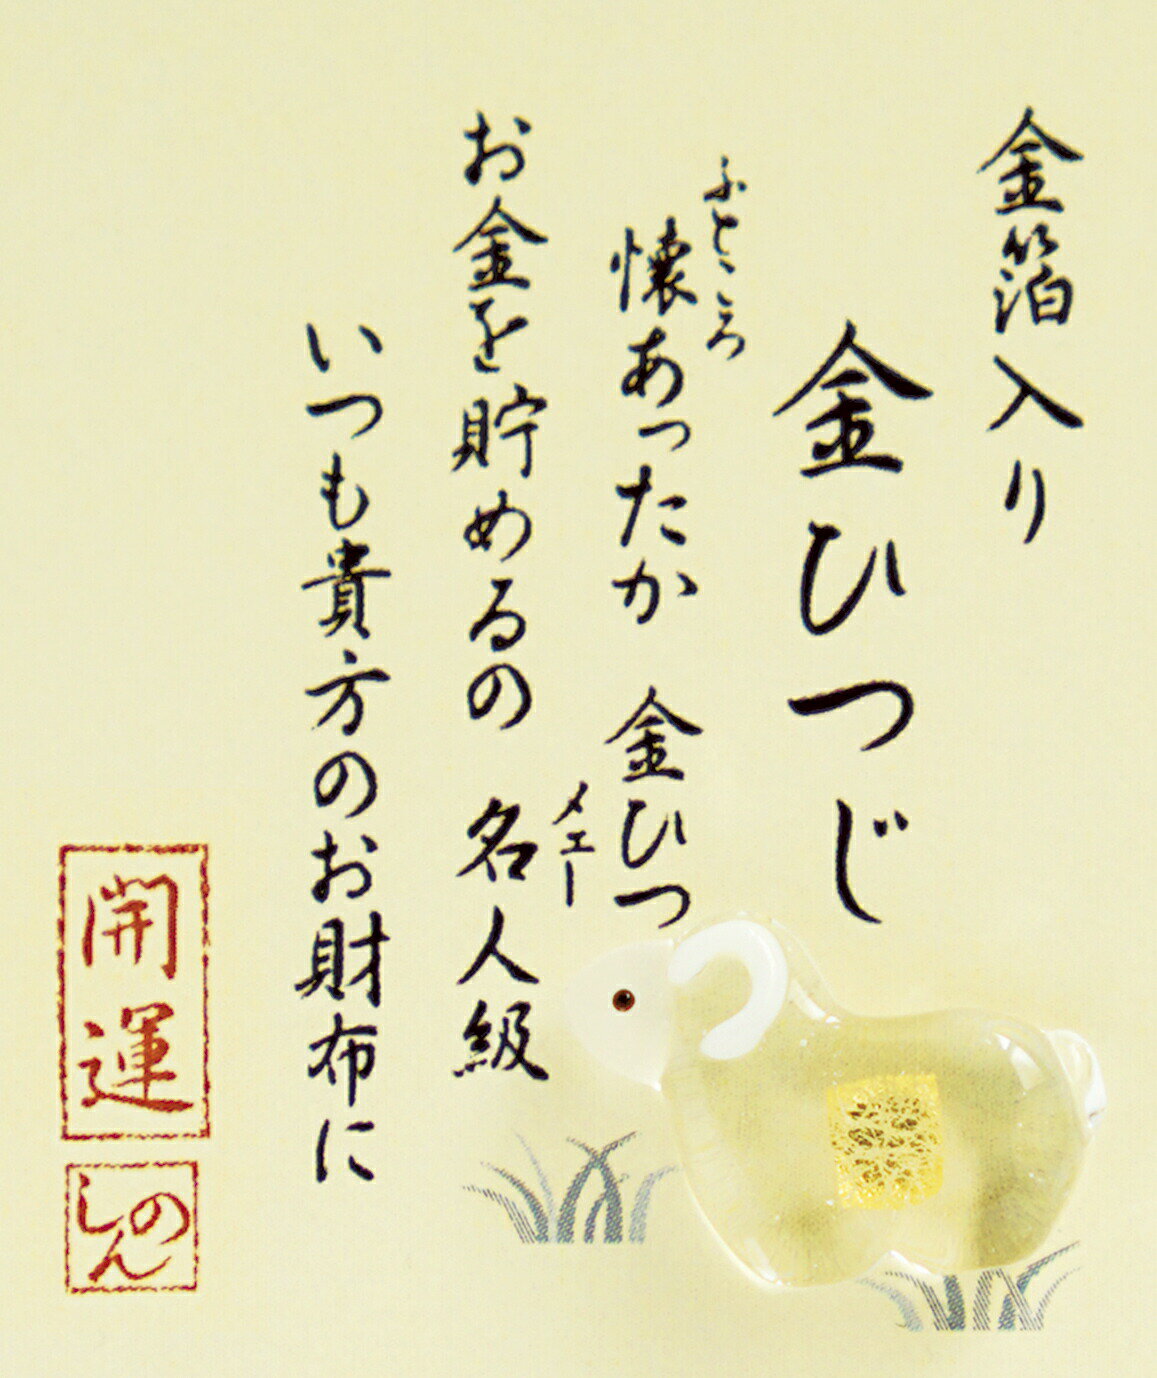 金箔入り
金ひつじ
ふところ
懐あったか 金ひつ
メエー
お金を貯めるの 名人級
いつも貴方のお財布に
開運
のん
し